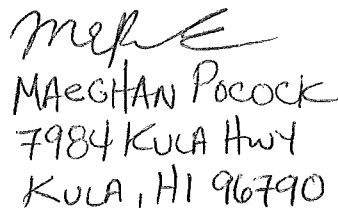 MAEGHAN POCOCK
7984 KULA HWY
KULA, HI 96790